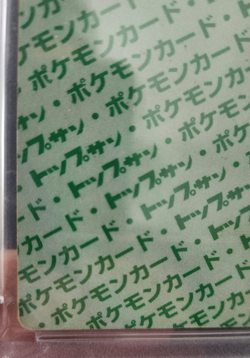 ・ポケモンカード・
・ポケモンカード・
ン・ポケモンカード・
サン・ポケモンカード
トップサン・ポケモン
・トップサン・ポケ
ド・トップサン・トップサン
カード・トップサン・
モンカード・トップサン
モンカード・ポケモンカード
ポケモンカード・ポケモン
・ポケモンカード